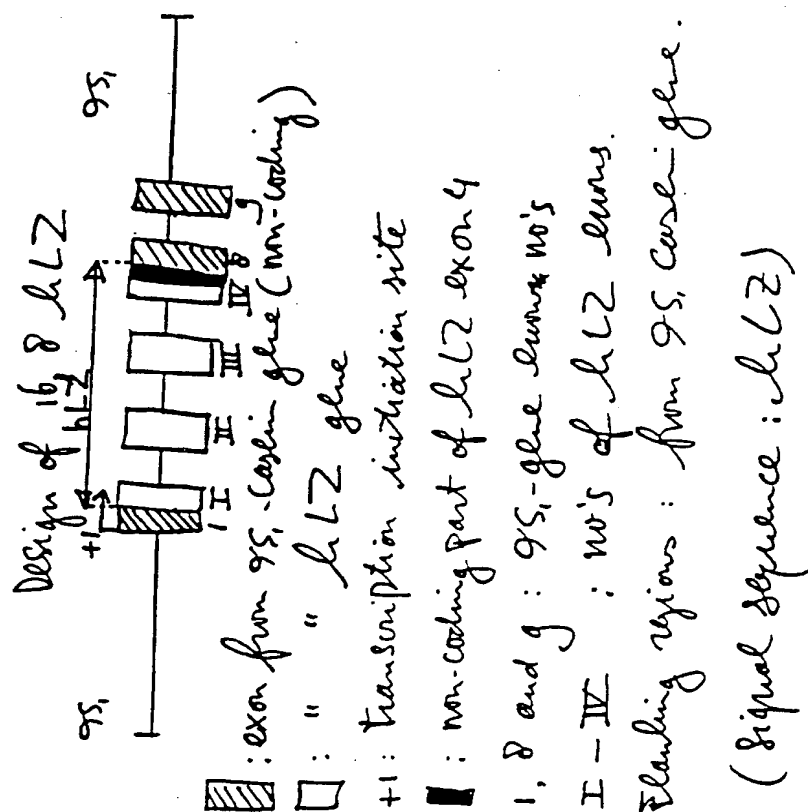 Design of 16, 8 hLZ
αS₁ αS₁
+1 hLZ
1 I II III IV 8 9
: exon from αS₁-casein gene (non-coding)
: " " hLZ gene
+1: transcription initiation site
: non-coding part of hLZ exon 4
1, 8 and 9 : αS₁-gene no's
I - IV : no's of hLZ exons.
Flanking regions : from αS₁ casein gene.
(Signal sequence : hLZ)